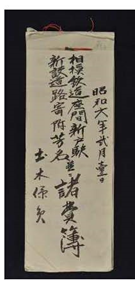 昭和六年弐月壹日
相模鉄道座間新戸駅
新設道路寄附芳名
並諸費簿
土木係員